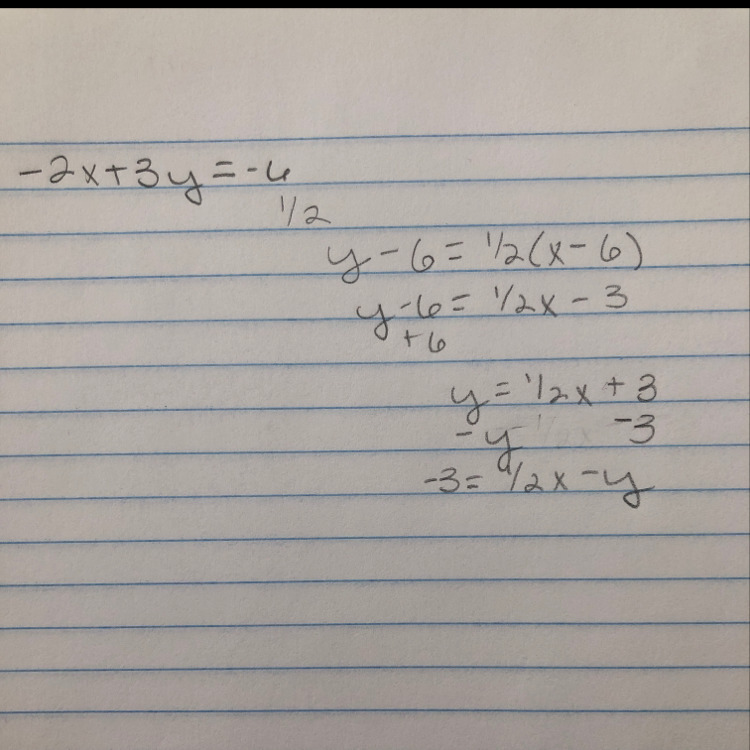 -2x+3y=-6
1/2
y-6=1/2(x-6)
y-6=1/2x-3
+6
y=1/2x+3
-y -3
-3=1/2x-y